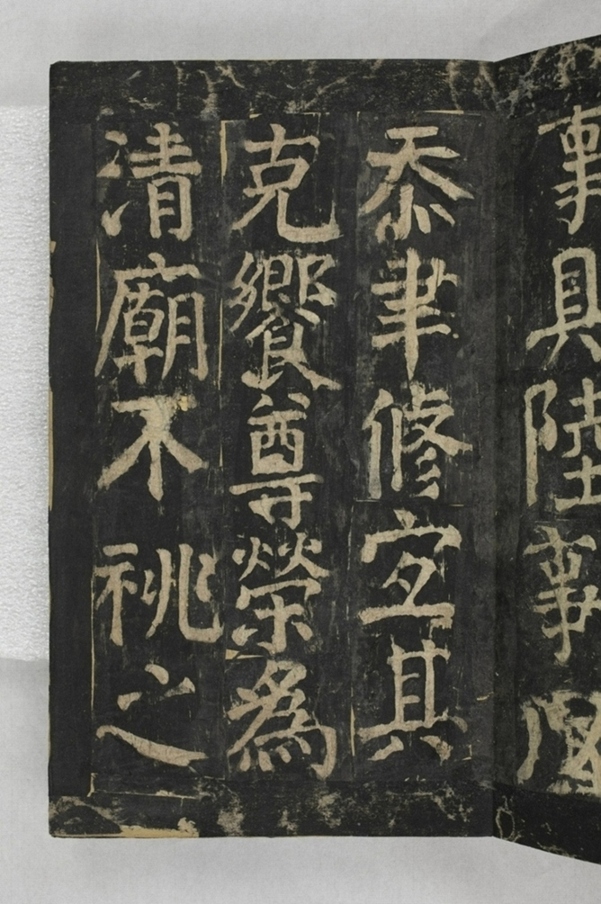 事具陸事
忝聿修宐其
克饗尊榮為
清廟不祧之